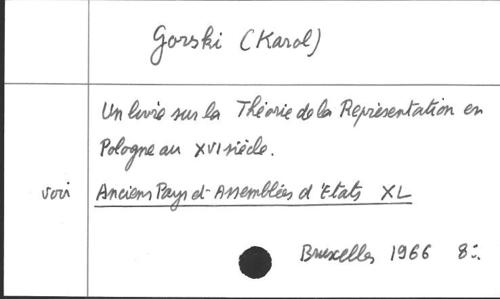 Gorski (Karol)
Un livre sur la Théorie de la Représentation en
Pologne au XVI siècle.
voir Anciens Pays et Assemblées d'Etats XL
Bruxelles 1966 8°.